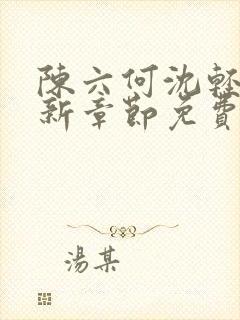 陳六何沈輕
新章節免費
湯某